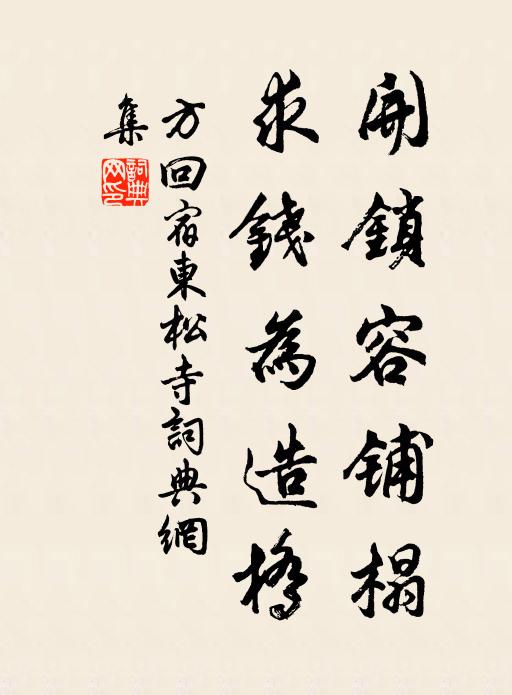 開鎖容鋪榻
求錢為造橋
方回宿東松寺詞典網
集
詞典
网印